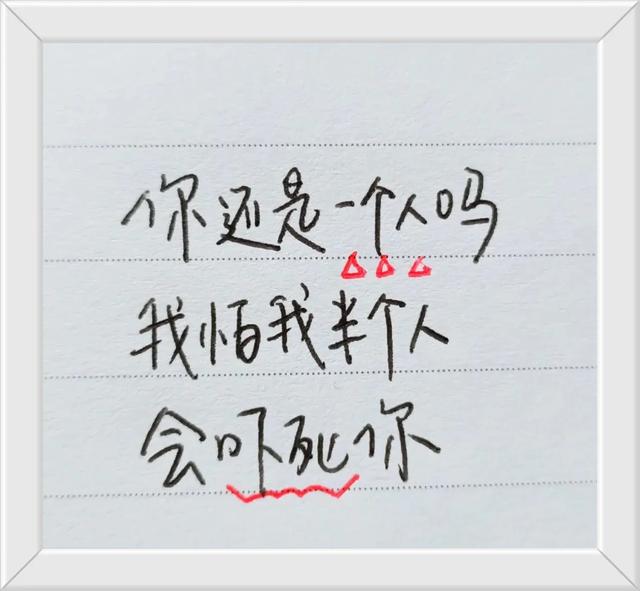 你还是一个人吗
我怕我半个人
会吓死你